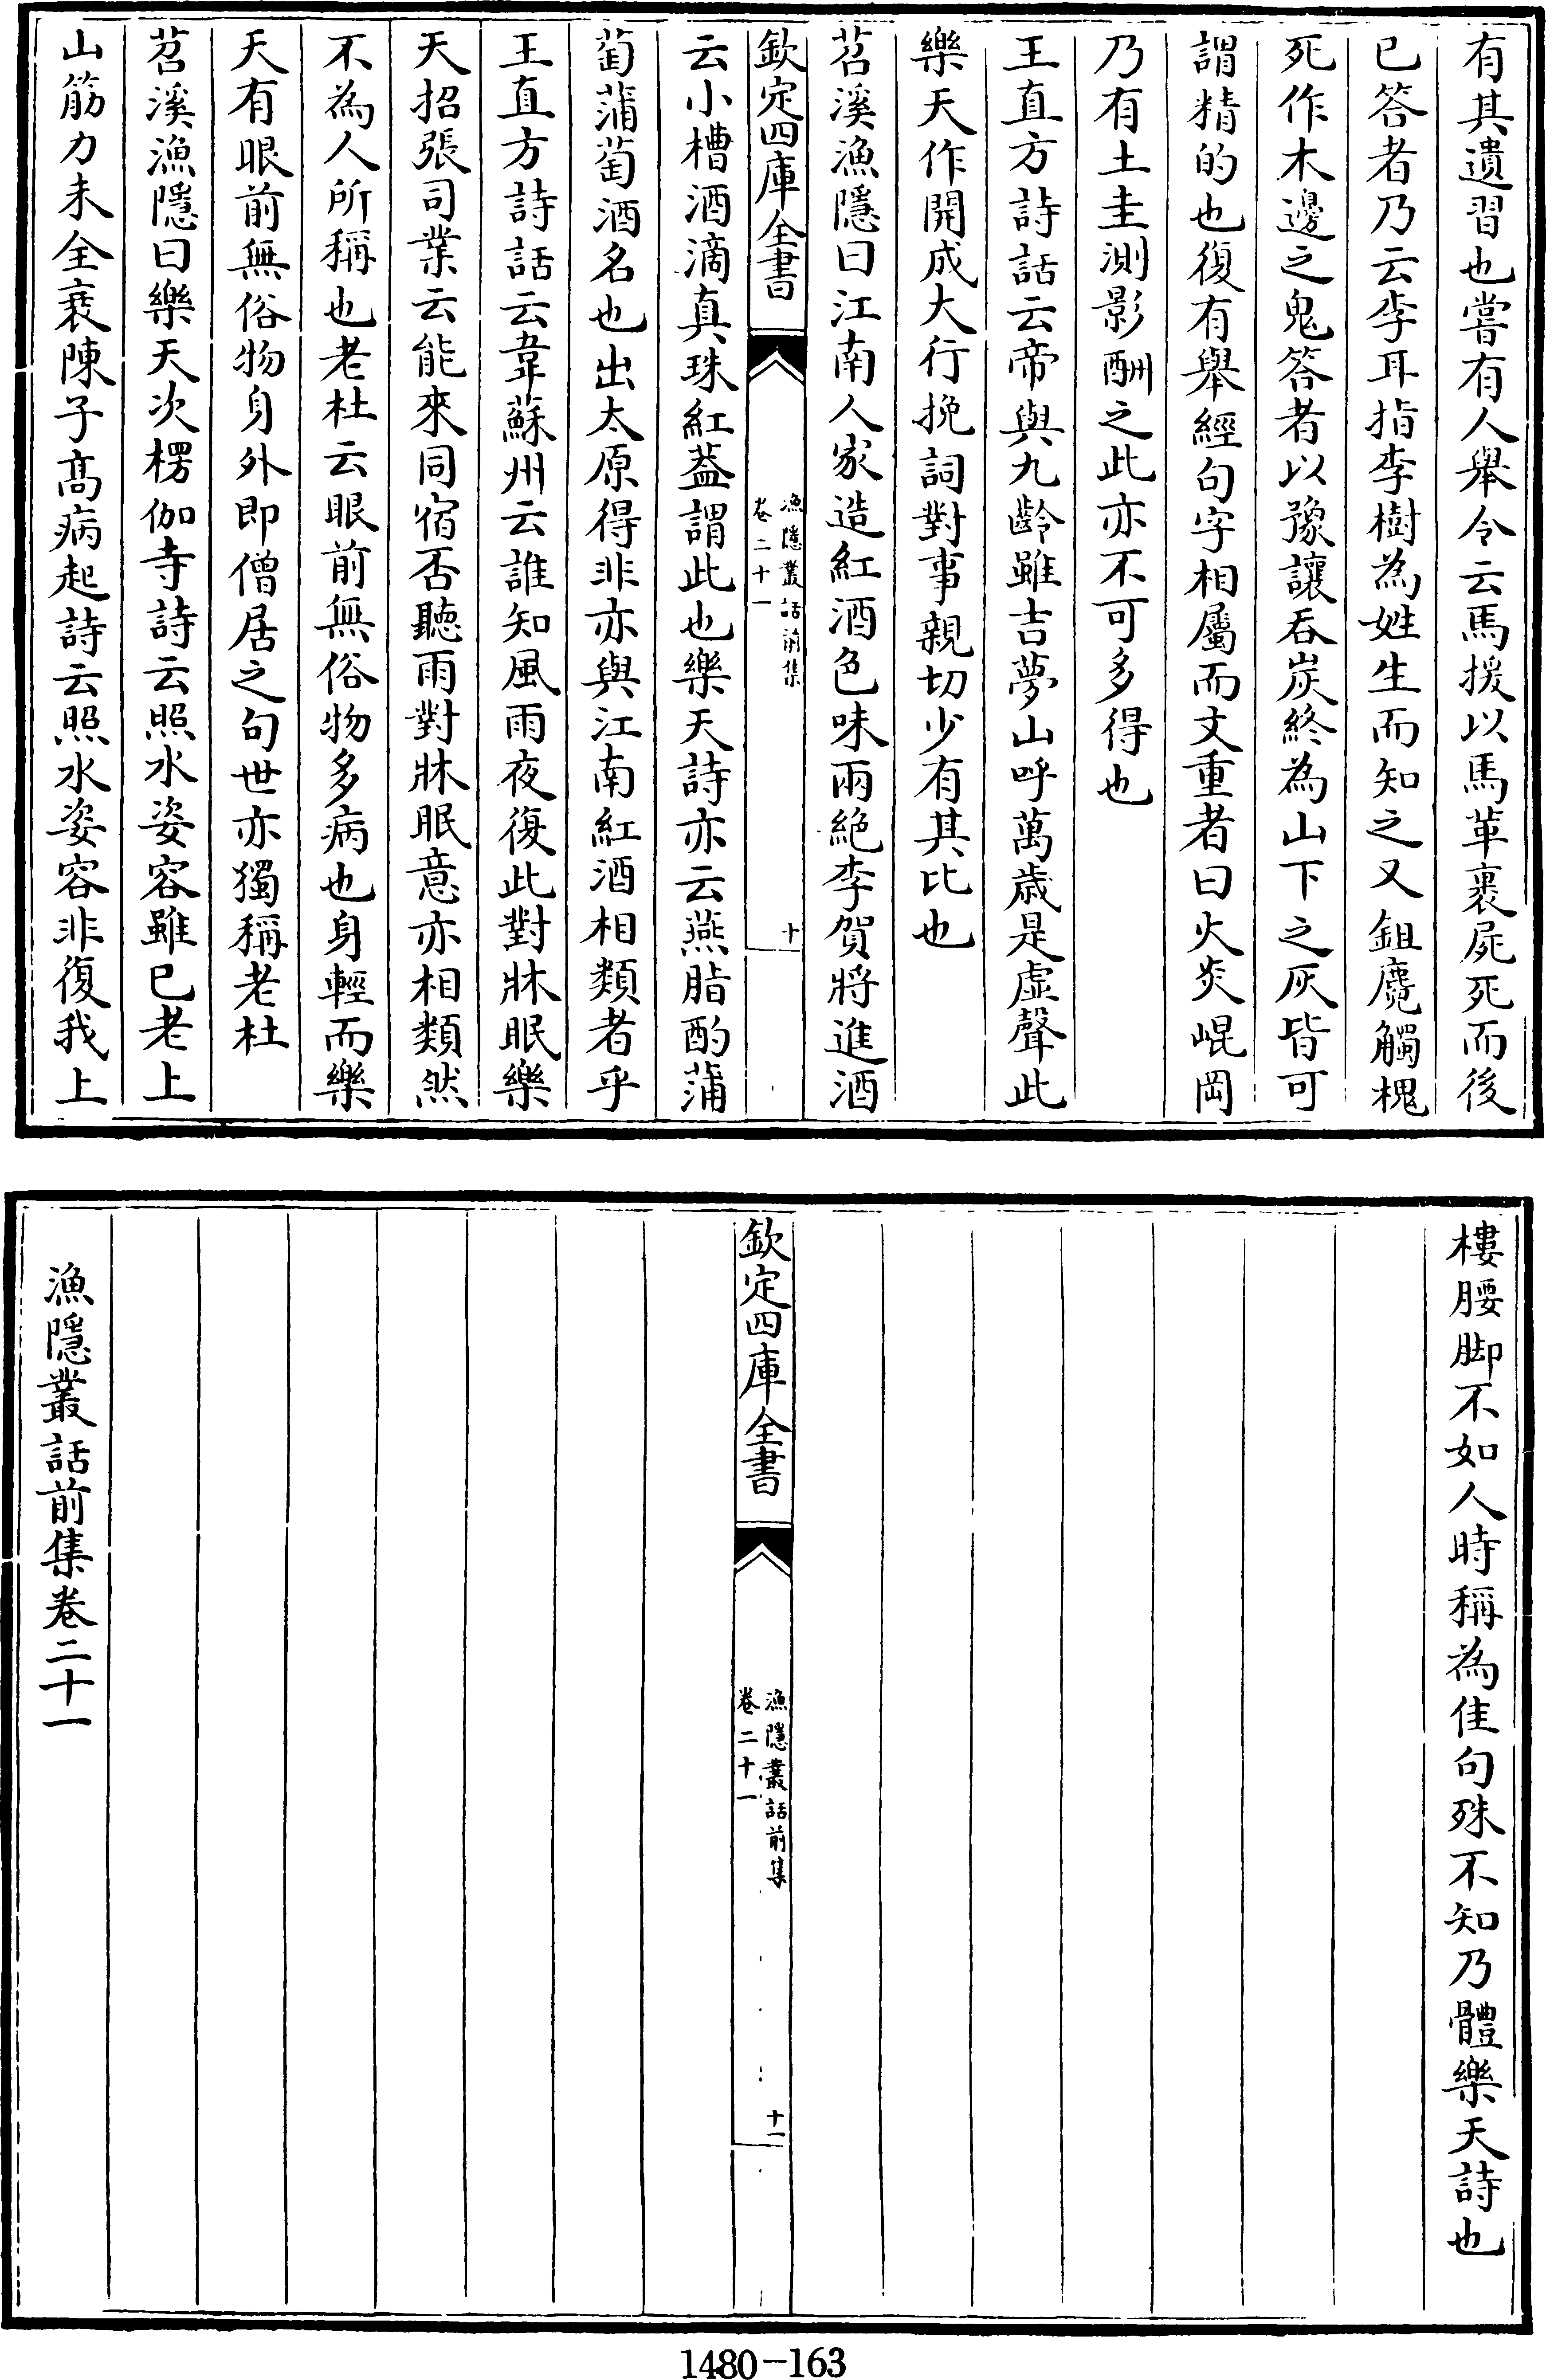 有其遺習也嘗有人舉令云馬援以馬革裹屍死而後
已答者乃云李耳指李樹為姓生而知之又鉏麑觸槐
死作木邊之鬼答者以豫讓吞炭終為山下之灰皆可
謂精的也復有舉經句字相屬而文重者曰火炎崐岡
乃有土圭測影酬之此亦不可多得也
王直方詩話云帝與九齡雖吉夢山呼萬歲是虛聲此
樂天作開成大行挽詞對事親切少有其比也
苕溪漁隱曰江南人家造紅酒色味兩絶李賀將進酒
欽定四庫全書
漁隱叢話前集
卷二十一
十
云小槽酒滴真珠紅葢謂此也樂天詩亦云燕脂酌蒲
萄蒲萄酒名也出太原得非亦與江南紅酒相類者乎
王直方詩話云韋蘇州云誰知風雨夜復此對牀眠樂
天招張司業云能來同宿否聽雨對牀眠意亦相類然
不為人所稱也老杜云眼前無俗物多病也身輕而樂
天有眼前無俗物身外即僧居之句世亦獨稱老杜
苕溪漁隱曰樂天次楞伽寺詩云照水姿容雖已老上
山筋力未全衰陳子高病起詩云照水姿容非復我上
樓腰脚不如人時稱為佳句殊不知乃體樂天詩也
欽定四庫全書
漁隱叢話前集
卷二十一
十一
漁隱叢話前集卷二十一
1480-163